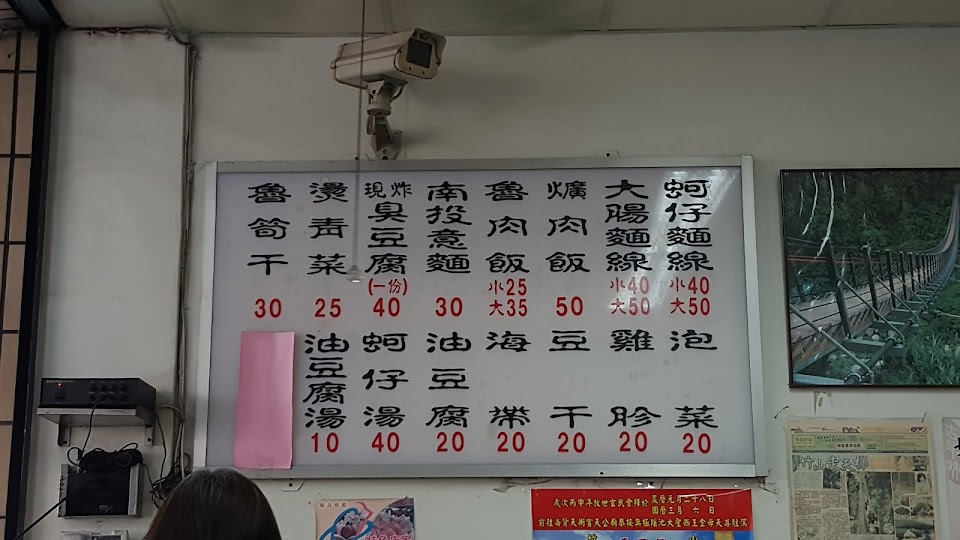 蚵仔麵線
小40
大50
大腸麵線
小40
大50
爌肉飯
50
魯肉飯
小25
大35
南投意麵
30
現炸臭豆腐
(一份)
40
燙青菜
25
魯筍干
30
泡菜
20
雞胗
20
豆干
20
海帶
20
油豆腐
20
蚵仔湯
40
油豆腐湯
10
農曆元月二十八日
國曆三月 六 日
竹山